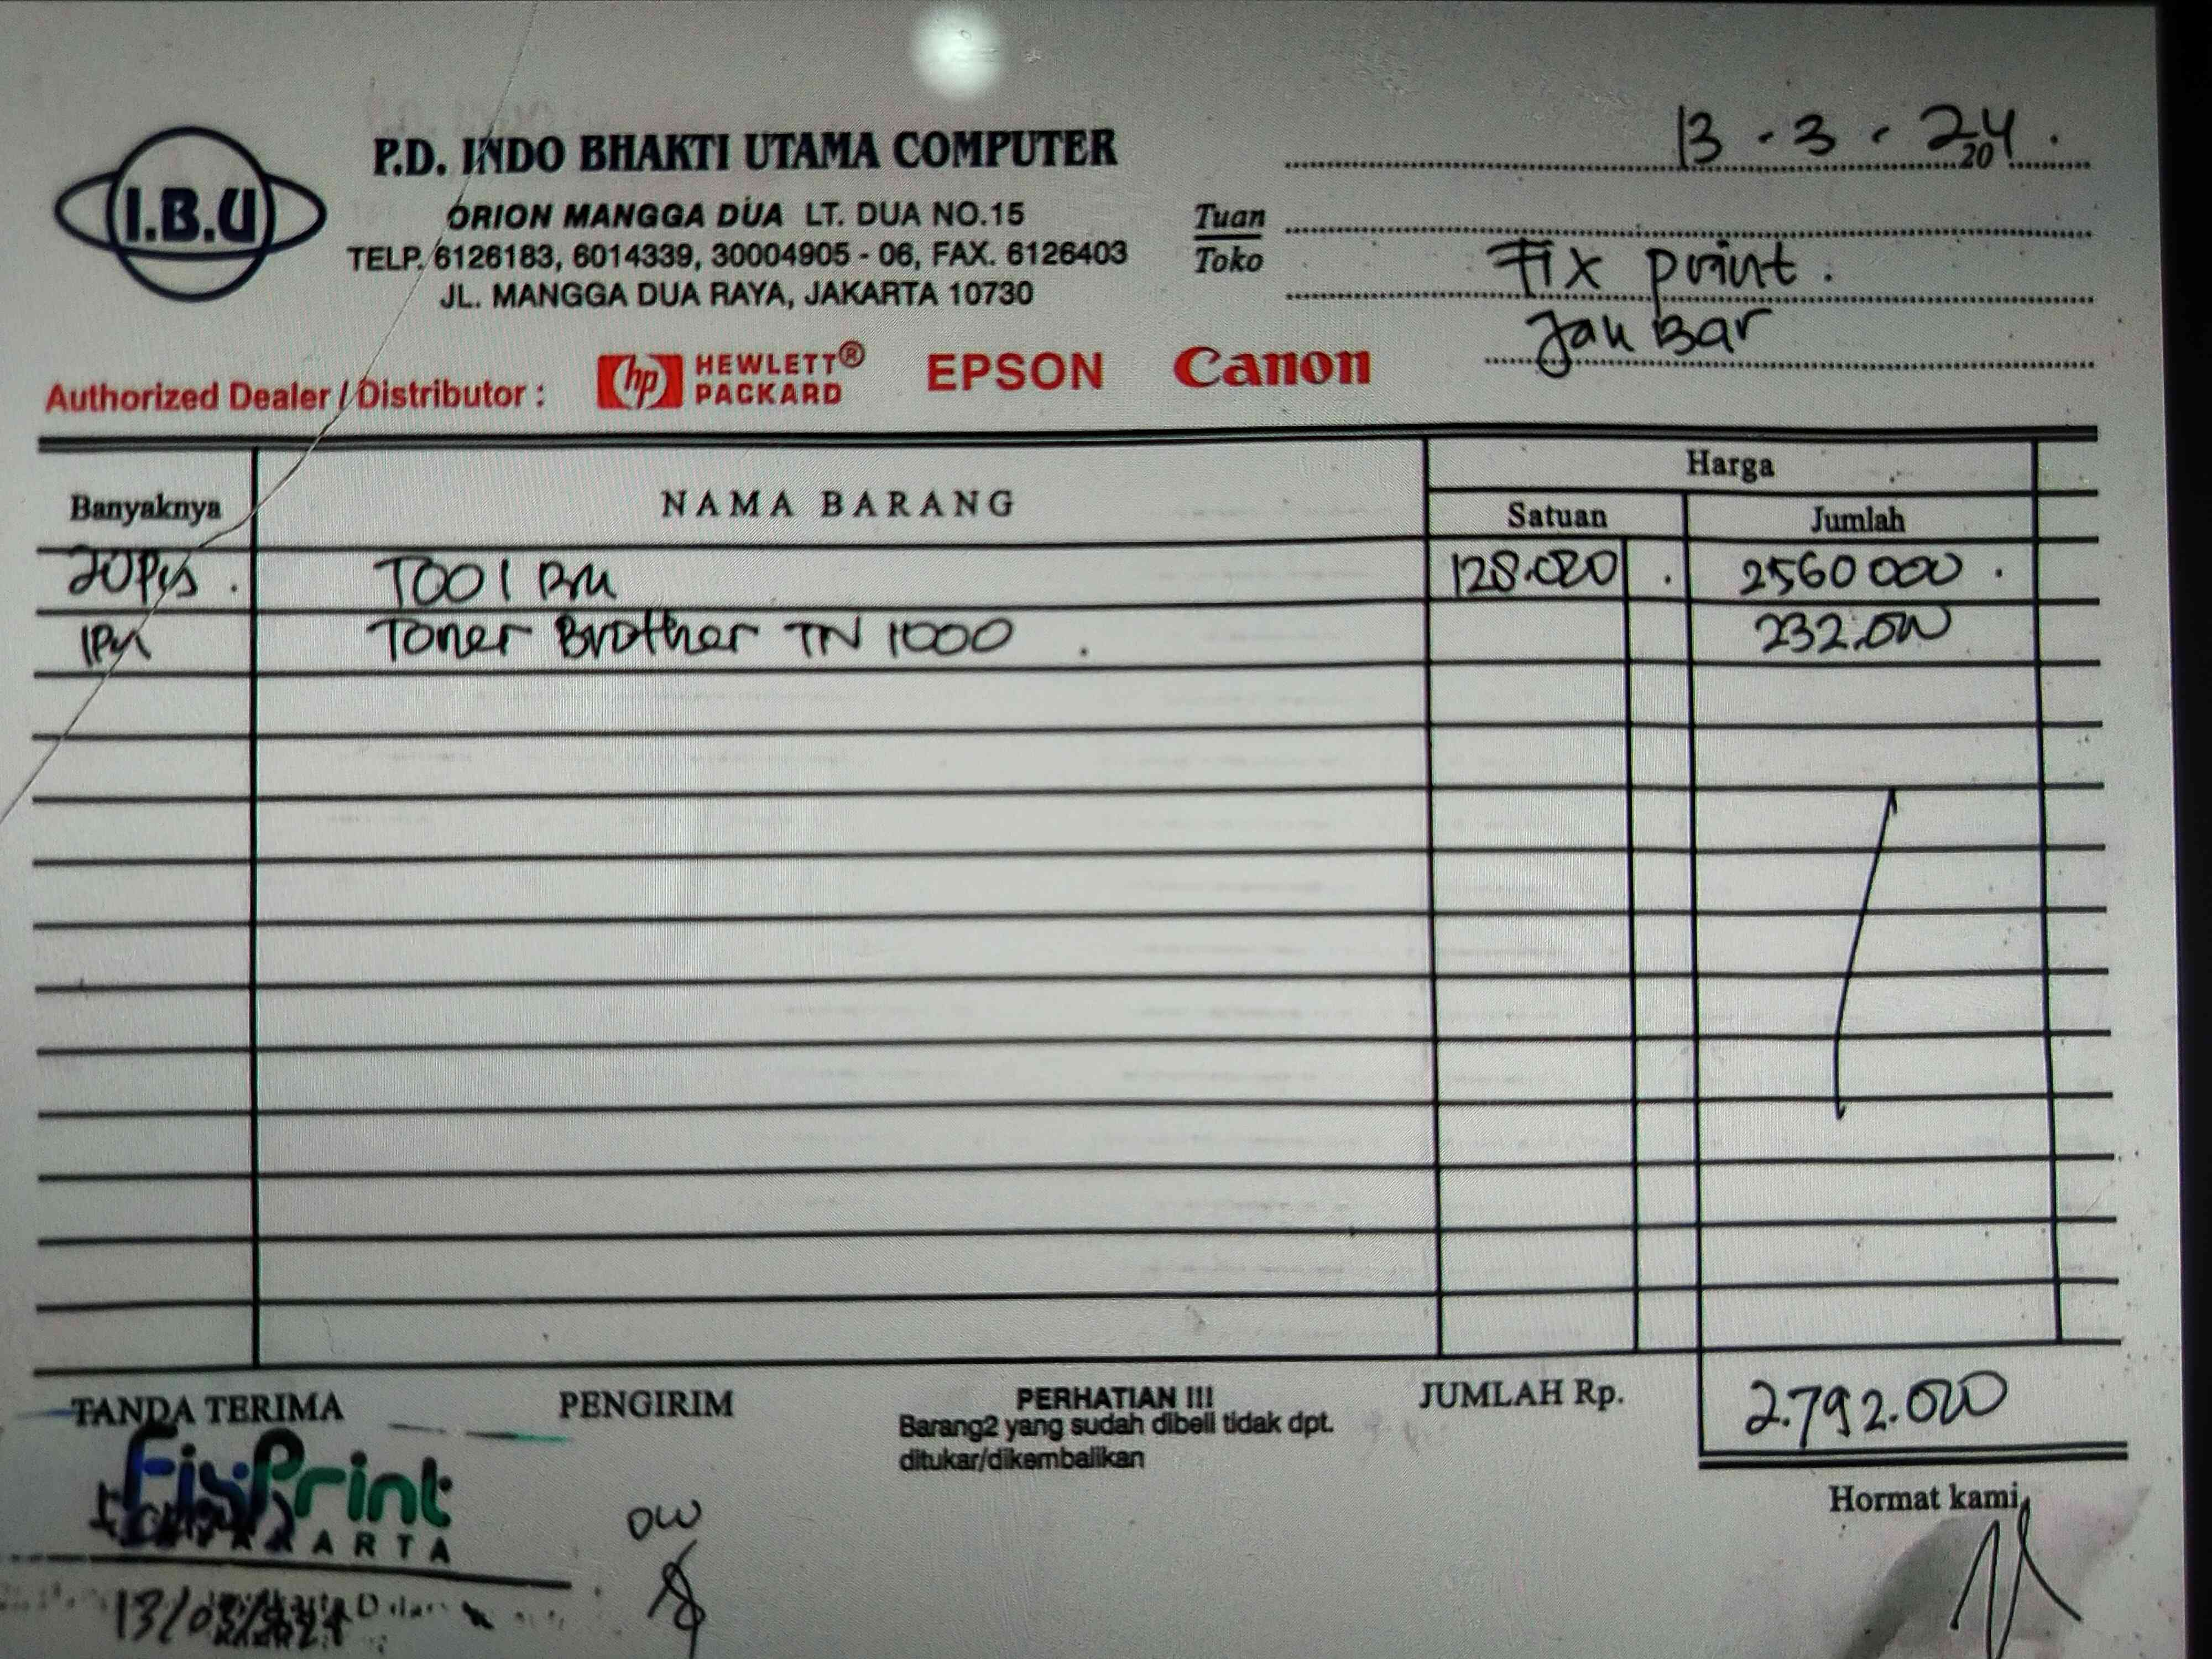 I.B.U
P.D. INDO BHAKTI UTAMA COMPUTER
ORION MANGGA DUA LT. DUA NO.15
TELP. 6126183, 6014339, 30004905 - 06, FAX. 6126403
JL. MANGGA DUA RAYA, JAKARTA 10730
13 - 3 - 24.
20
Tuan
Toko
Fix print.
Jak Bar
Authorized Dealer / Distributor : hp HEWLETT® PACKARD EPSON Canon
Banyaknya NAMA BARANG Harga
Satuan Jumlah
20 Pcs. T001 128.000 . 2560 000 .
1 Toner Brother TN 1000 . 232.000
TANDA TERIMA PENGIRIM PERHATIAN !!! JUMLAH Rp. 2.792.000
Barang2 yang sudah dibeli tidak dpt.
ditukar/dikembalikan
Hormat kami,
FixPrint
JAKARTA
DW
13/03/2024